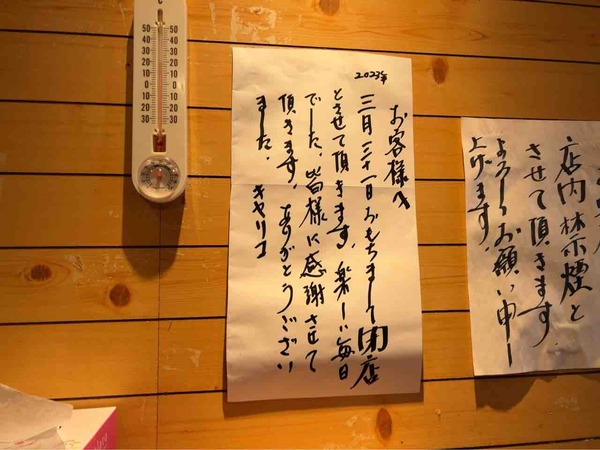 お客様へ
2023年
三月三十一日おもちまして閉店
とさせて頂きます。楽しい毎日
でした。皆様に感謝させて
頂きます。ありがとうござい
ました。 キヤリコ
店内禁煙と
させて頂きます
よろしくお願い申し
上げます。
C
50 50
40 40
30 30
20 20
10 10
0 0
10 10
20 20
30 30